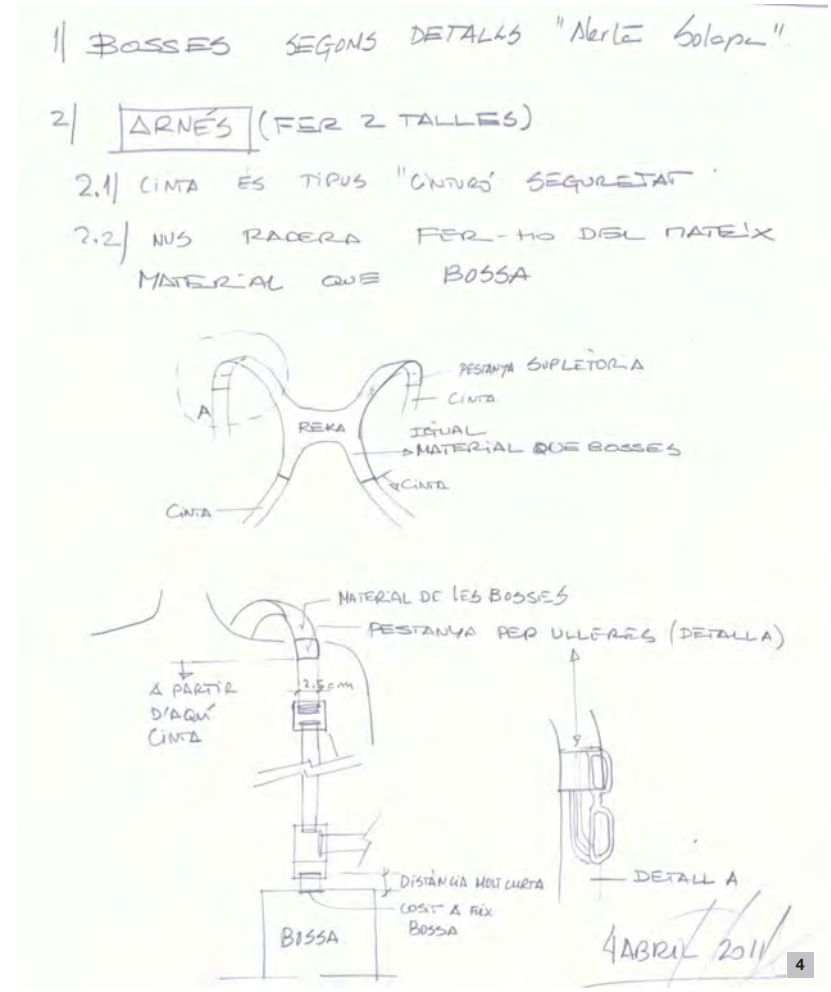 1| BOSSES SEGONS DETALLS "Nerta Solapa"
2| ARNÉS (FER 2 TALLES)
2.1| CINTA ÉS TIPUS "CINTURÓ SEGURETAT"
2.2| NUS RADERA FER-HO DEL MATEIX
MATERIAL QUE BOSSA
PESTANYA SUPLETORIA
CINTA
A
REKA
IGUAL
MATERIAL QUE BOSSES
CINTA
CINTA
MATERIAL DE LES BOSSES
PESTANYA PER ULLERES (DETALL A)
A PARTIR
D'AQUÍ
CINTA
2.5 cm
DISTÀNCIA MOLT CURTA
COSIT A FIX
BOSSA
BOSSA
DETALL A
4 ABRIL 2011
4